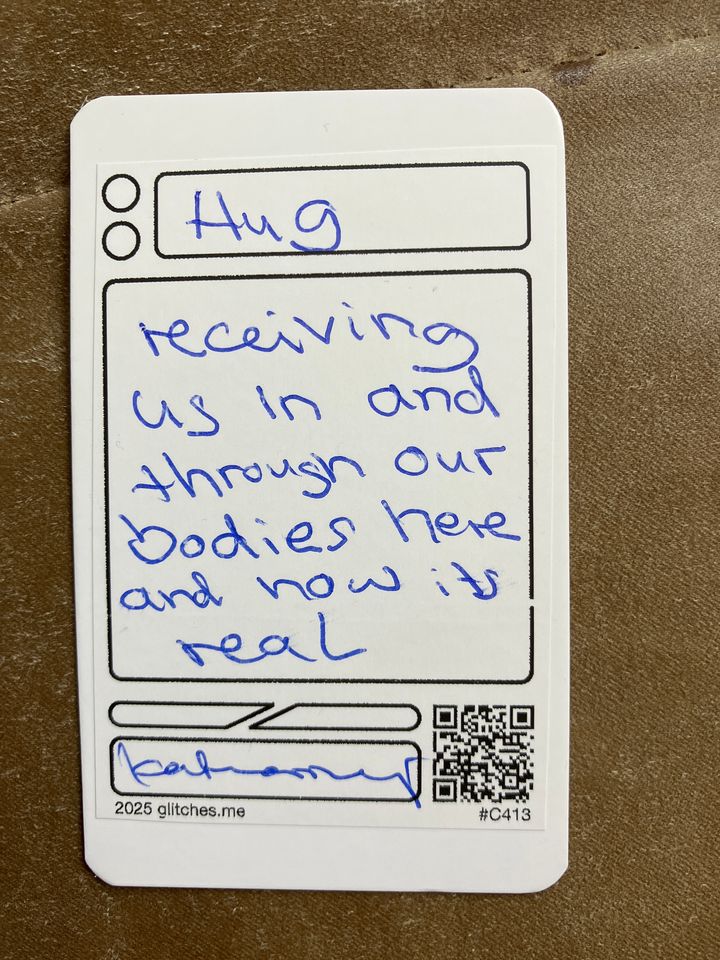 Hug
receiving
us in and
through our
bodies here
and now its
real
2025 glitches.me
#C413